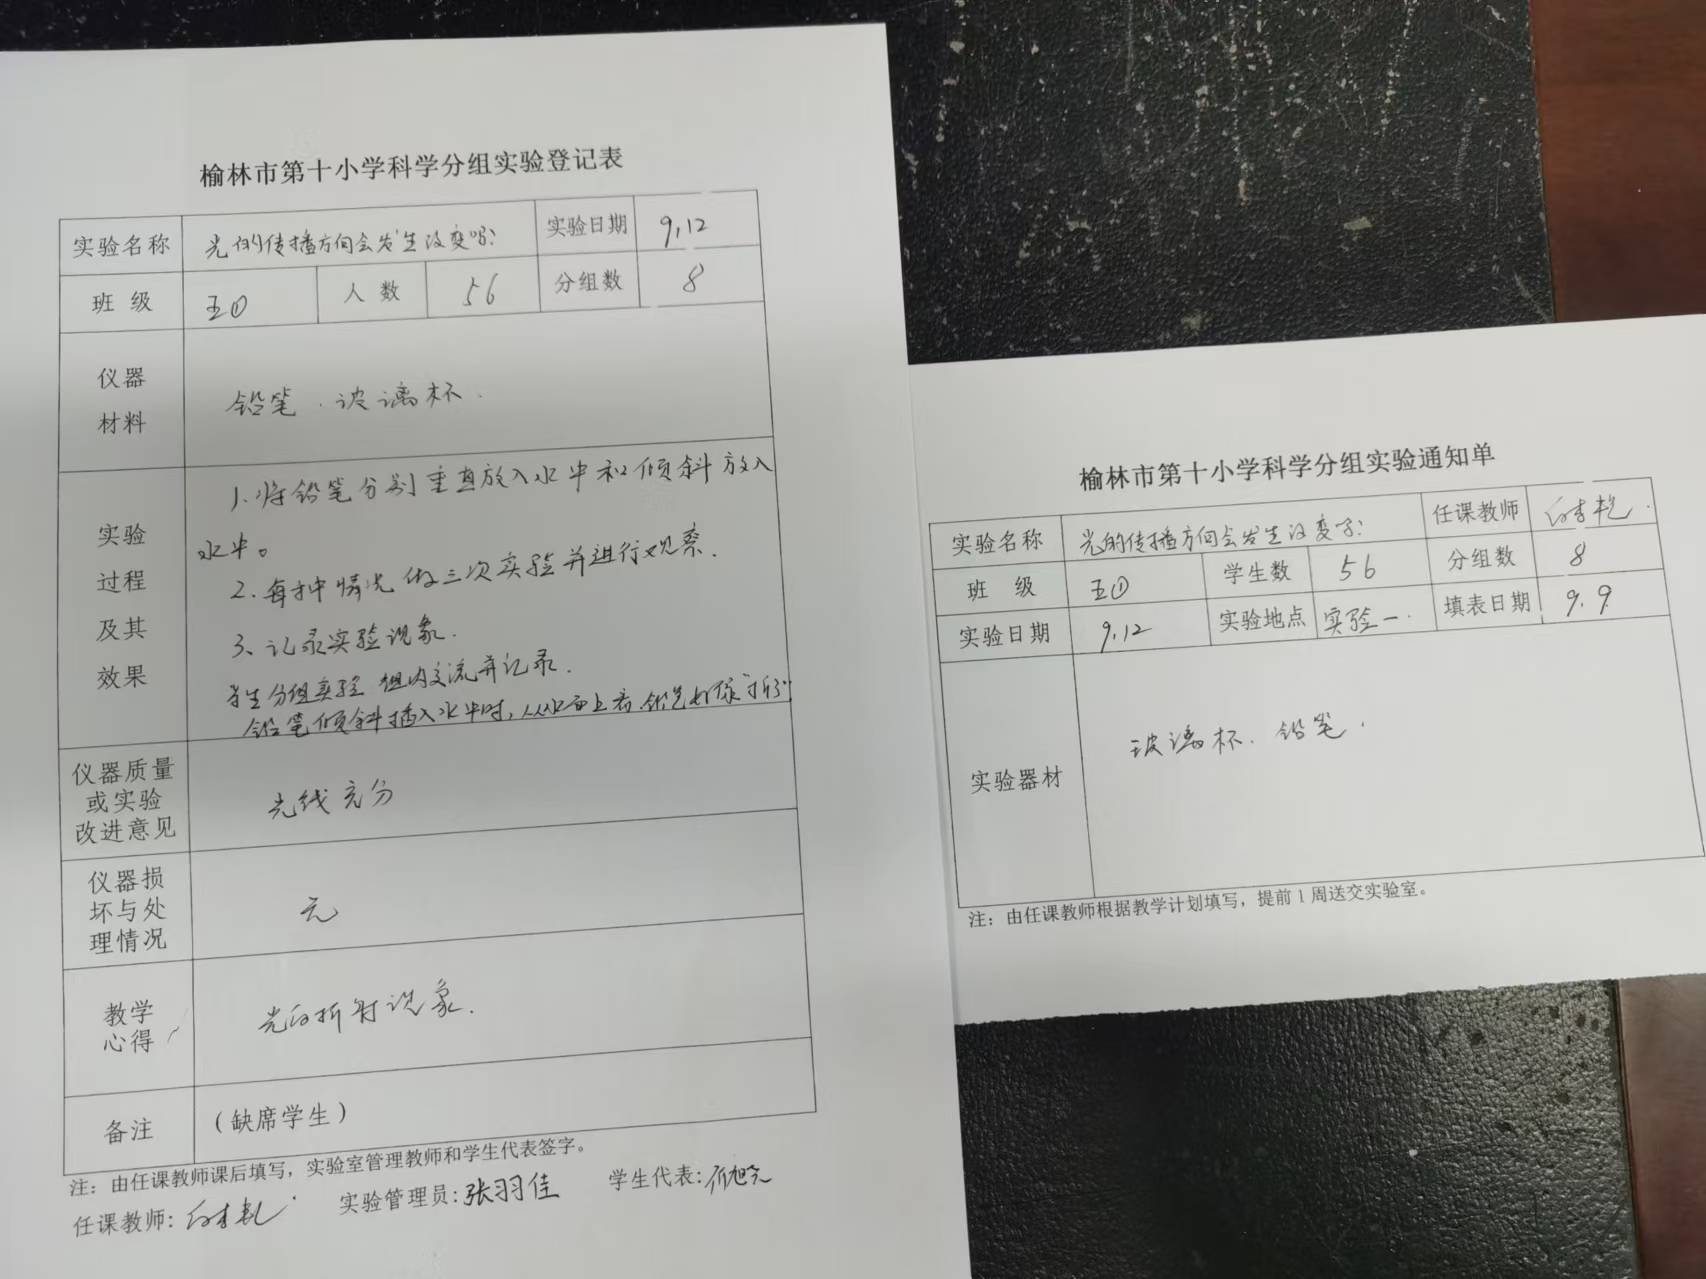 榆林市第十小学科学分组实验登记表
实验名称 光的传播方向会发生改变吗? 实验日期 9.12
班 级 五① 人 数 56 分组数 8
仪器
材料
铅笔.玻璃杯.
实验
过程
及其
效果
1.将铅笔分别垂直放入水中和倾斜放入
水中。
2.每种情况做三次实验并进行观察.
3、记录实验现象.
学生分组实验 组内交流并记录.
铅笔倾斜插入水中时,从水面上看,铅笔好像折了
仪器质量
或实验
改进意见
光线充分
仪器损
坏与处
理情况
无
教学
心得
光的折射现象.
备注 (缺席学生)
注:由任课教师课后填写,实验室管理教师和学生代表签字。
任课教师: 实验管理员:张羽佳 学生代表:
榆林市第十小学科学分组实验通知单
实验名称 光的传播方向会发生改变吗? 任课教师
班 级 五① 学生数 56 分组数 8
实验日期 9.12 实验地点 实验一. 填表日期 9.9
实验器材 玻璃杯.铅笔.
注:由任课教师根据教学计划填写,提前1周送交实验室。